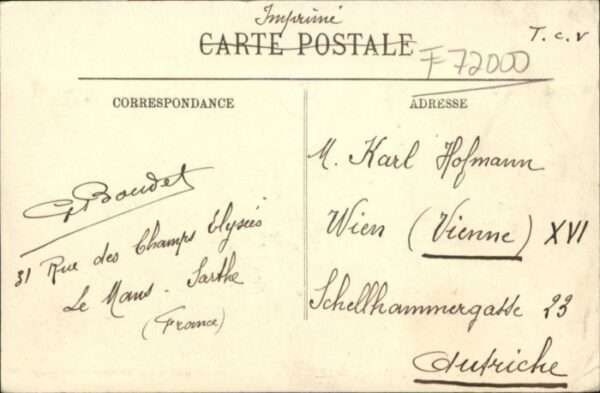 Imprimé
CARTE POSTALE
T.c.v
F 72000
CORRESPONDANCE
ADRESSE
G Boudet
31 Rue des Champs Elysées
Le Mans - Sarthe
(France)
M. Karl Hofmann
Wien (Vienne) XVI
Schellhammergasse 23
Autriche